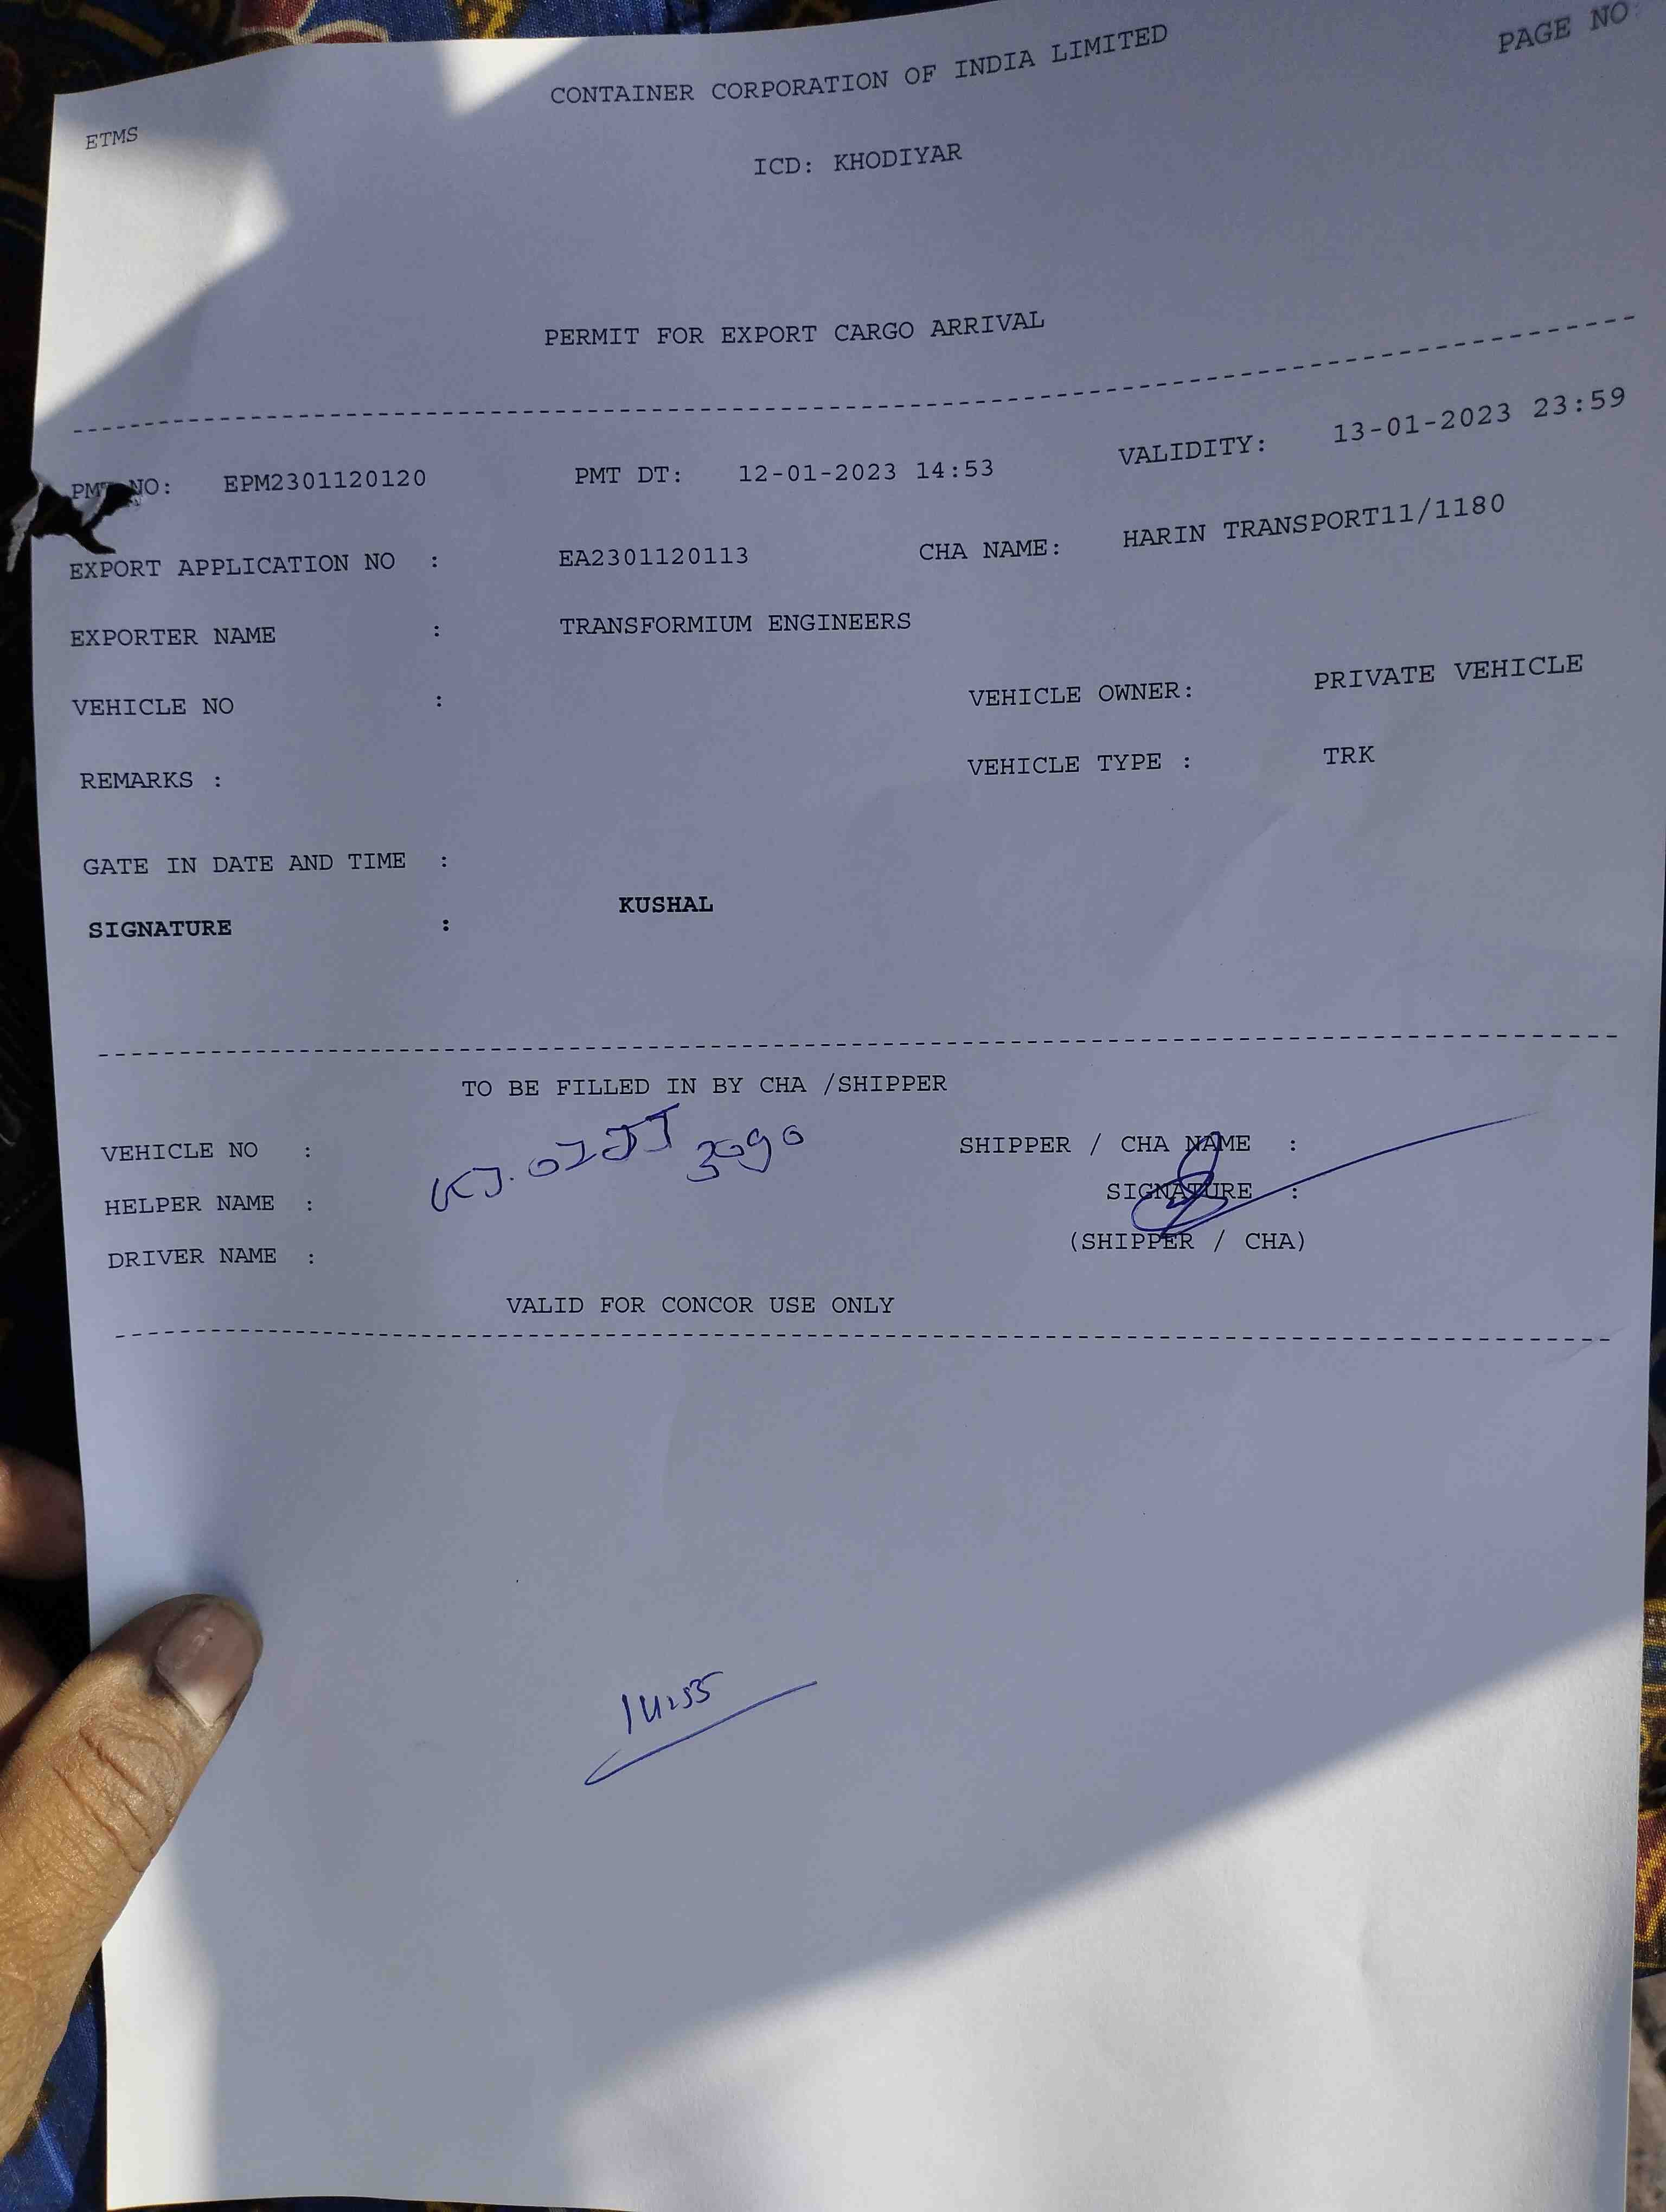 PAGE NO
CONTAINER CORPORATION OF INDIA LIMITED
ETMS
ICD: KHODIYAR
PERMIT FOR EXPORT CARGO ARRIVAL
PMT NO: EPM2301120120 PMT DT: 12-01-2023 14:53 VALIDITY: 13-01-2023 23:59
EXPORT APPLICATION NO : EA2301120113 CHA NAME: HARIN TRANSPORT11/1180
EXPORTER NAME : TRANSFORMIUM ENGINEERS
VEHICLE NO : VEHICLE OWNER: PRIVATE VEHICLE
REMARKS : VEHICLE TYPE : TRK
GATE IN DATE AND TIME :
SIGNATURE : KUSHAL
TO BE FILLED IN BY CHA /SHIPPER
VEHICLE NO : SHIPPER / CHA NAME :
HELPER NAME : SIGNATURE :
DRIVER NAME : (SHIPPER / CHA)
VALID FOR CONCOR USE ONLY